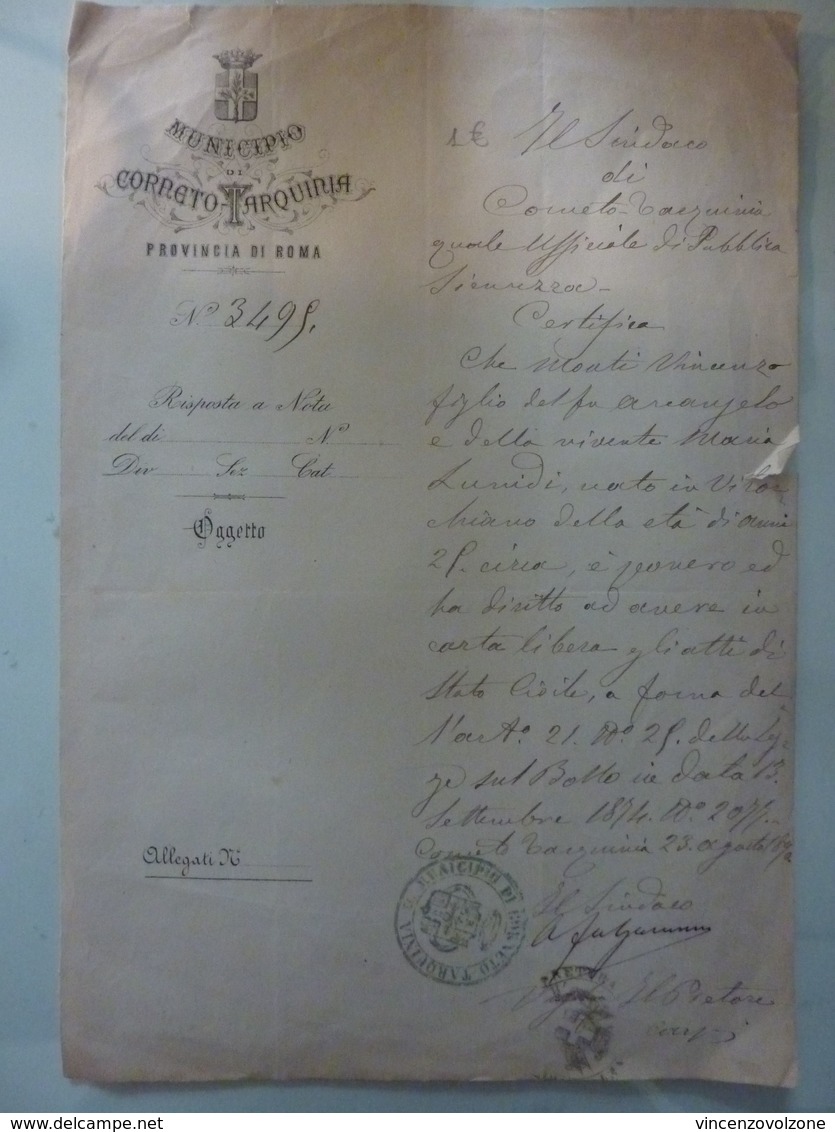 MUNICIPIO
DI
CORNETO-TARQUINIA
PROVINCIA DI ROMA
N.º 3495.
Risposta a Nota
del dì N.º
Div Sez Cat
Oggetto
Allegati N
1€
Il Sindaco
di
Corneto-Tarquinia
quale Ufficiale di Pubblica
Sicurezza
Certifica
Che Monti Vincenzo
figlio del fu Arcangelo
e della vivente Maria
Lunidi, nato in Vitor
chiano della età di anni
25. circa, è povero ed
ha diritto ad avere in
carta libera gli atti di
Stato Civile, a forma del
l'art.º 21. Nº 25. della Leg
ge sul Bollo in data 13.
Settembre 1874. Nº 2077.
Corneto Tarquinia 23. Agosto
Il Sindaco
MUNICIPIO DI CORNETO TARQUINIA
PRETURA
Il Pretore
delcampe.net
vincenzovolzone